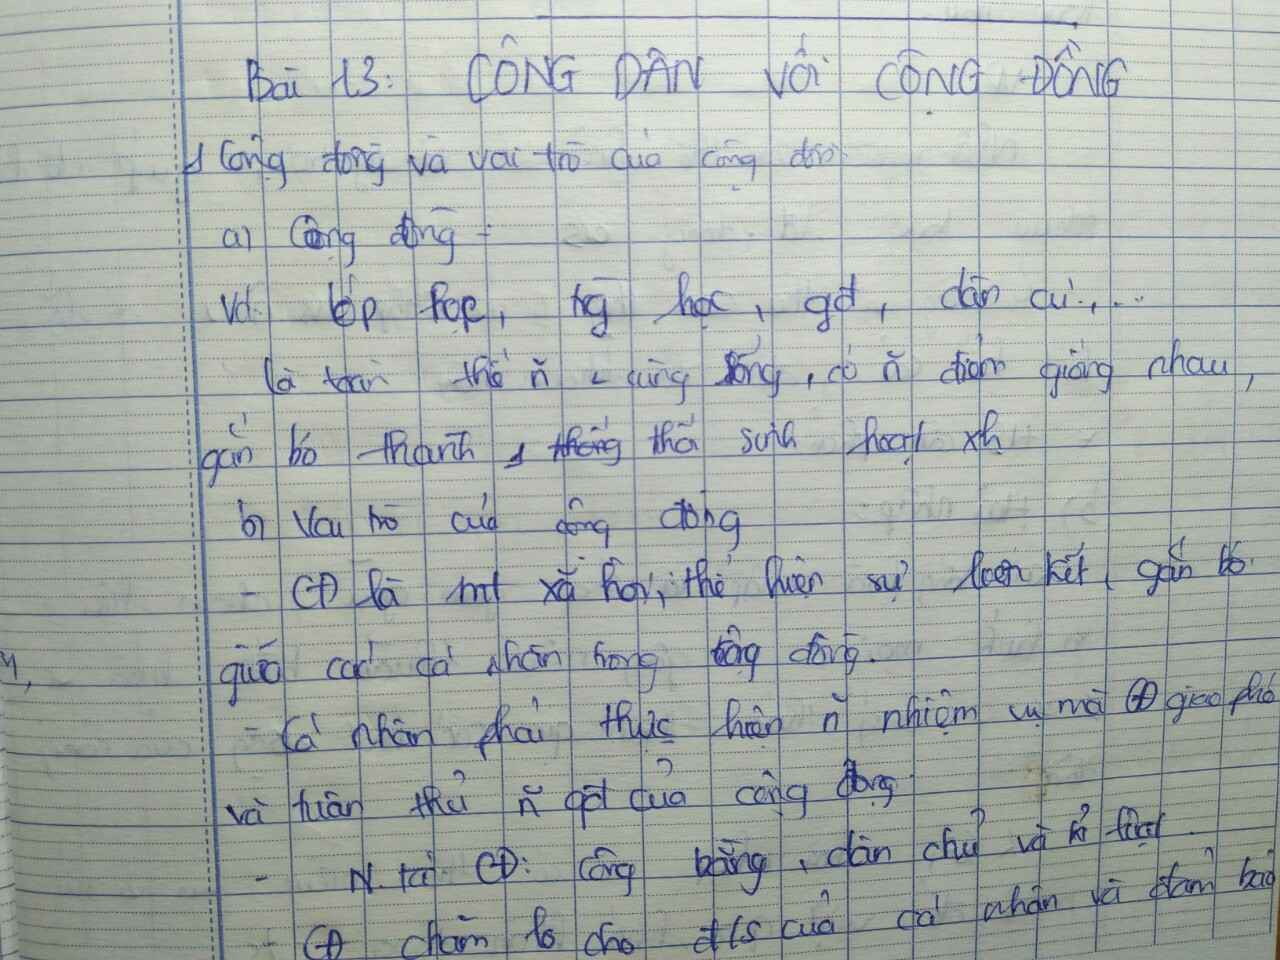 Bài 13: CÔNG DÂN VỚI CỘNG ĐỒNG
1 Cộng đồng và vai trò của cộng đồn
a) Cộng đồng:
Vd: lớp học, trg học, gđ, dân cư,...
là toàn thể ñ cùng sống, có ñ điểm giống nhau,
gắn bó thành 1 thống thể sinh hoạt xh
b) Vai trò của cộng đồng
- CĐ là mt xã hội, thể hiện sự liên kết, gắn bó
giữa các cá nhân trong cộng đồng.
- Cá nhân phải thực hiện ñ nhiệm vụ mà CĐ giao phó
và tuân thủ ñ qđ của cộng đồng
- N. tắ CĐ: công bằng, dân chủ và kỉ luật
- CĐ chăm lo cho đ/s của cá nhân và đảm bảo